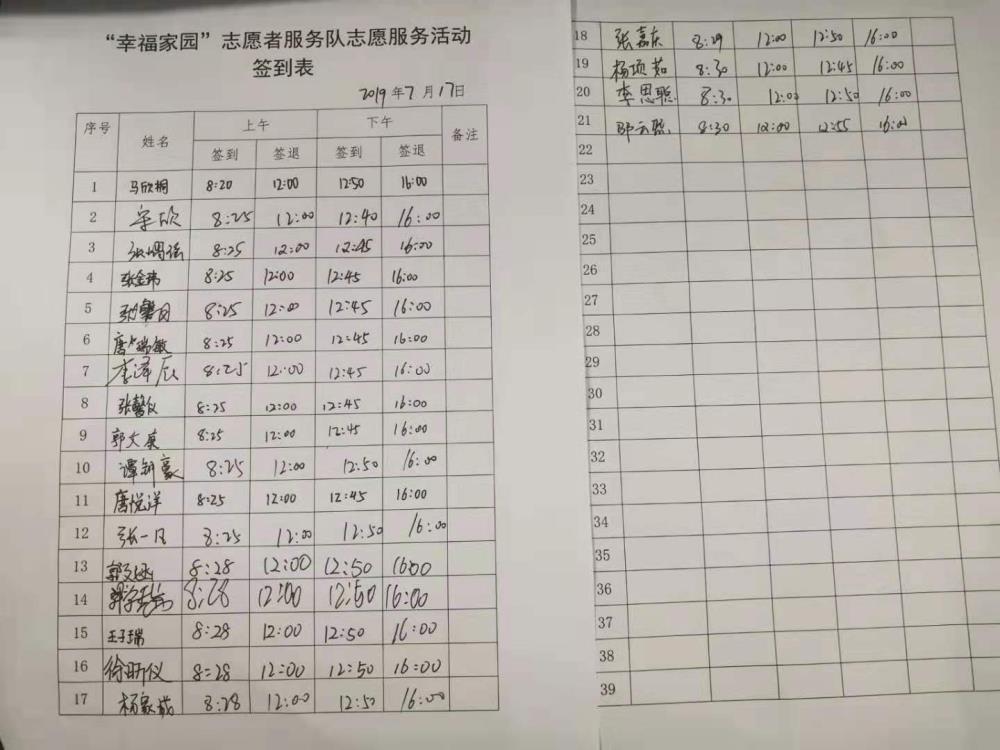 “幸福家园”志愿者服务队志愿服务活动
签到表
2019年7月17日
序号 姓名 上午 下午 备注
签到 签退 签到 签退
1 马欣桐 8:20 12:00 12:50 16:00
2 8:25 12:00 12:40 16:00
3 8:25 12:00 12:45 16:00
4 张金玮 8:25 12:00 12:45 16:00
5 8:25 12:00 12:45 16:00
6 唐瑞敏 8:25 12:00 12:45 16:00
7 李泽辰 8:25 12:00 12:45 16:00
8 张馨仪 8:25 12:00 12:45 16:00
9 郭文英 8:25 12:00 12:45 16:00
10 8:25 12:00 12:50 16:00
11 唐悦洋 8:25 12:00 12:45 16:00
12 张一凡 8:25 12:00 12:50 16:00
13 8:28 12:00 12:50 16:00
14 8:28 12:00 12:50 16:00
15 王子瑞 8:28 12:00 12:50 16:00
16 徐昕仪 8:28 12:00 12:50 16:00
17 8:28 12:00 12:50 16:00
18 张嘉庆 8:29 12:00 12:50 16:00
19 杨项茹 8:30 12:00 12:45 16:00
20 李思聪 8:30 12:00 12:50 16:00
21 8:30 12:00 12:55 16:00
22
23
24
25
26
27
28
29
30
31
32
33
34
35
36
37
38
39